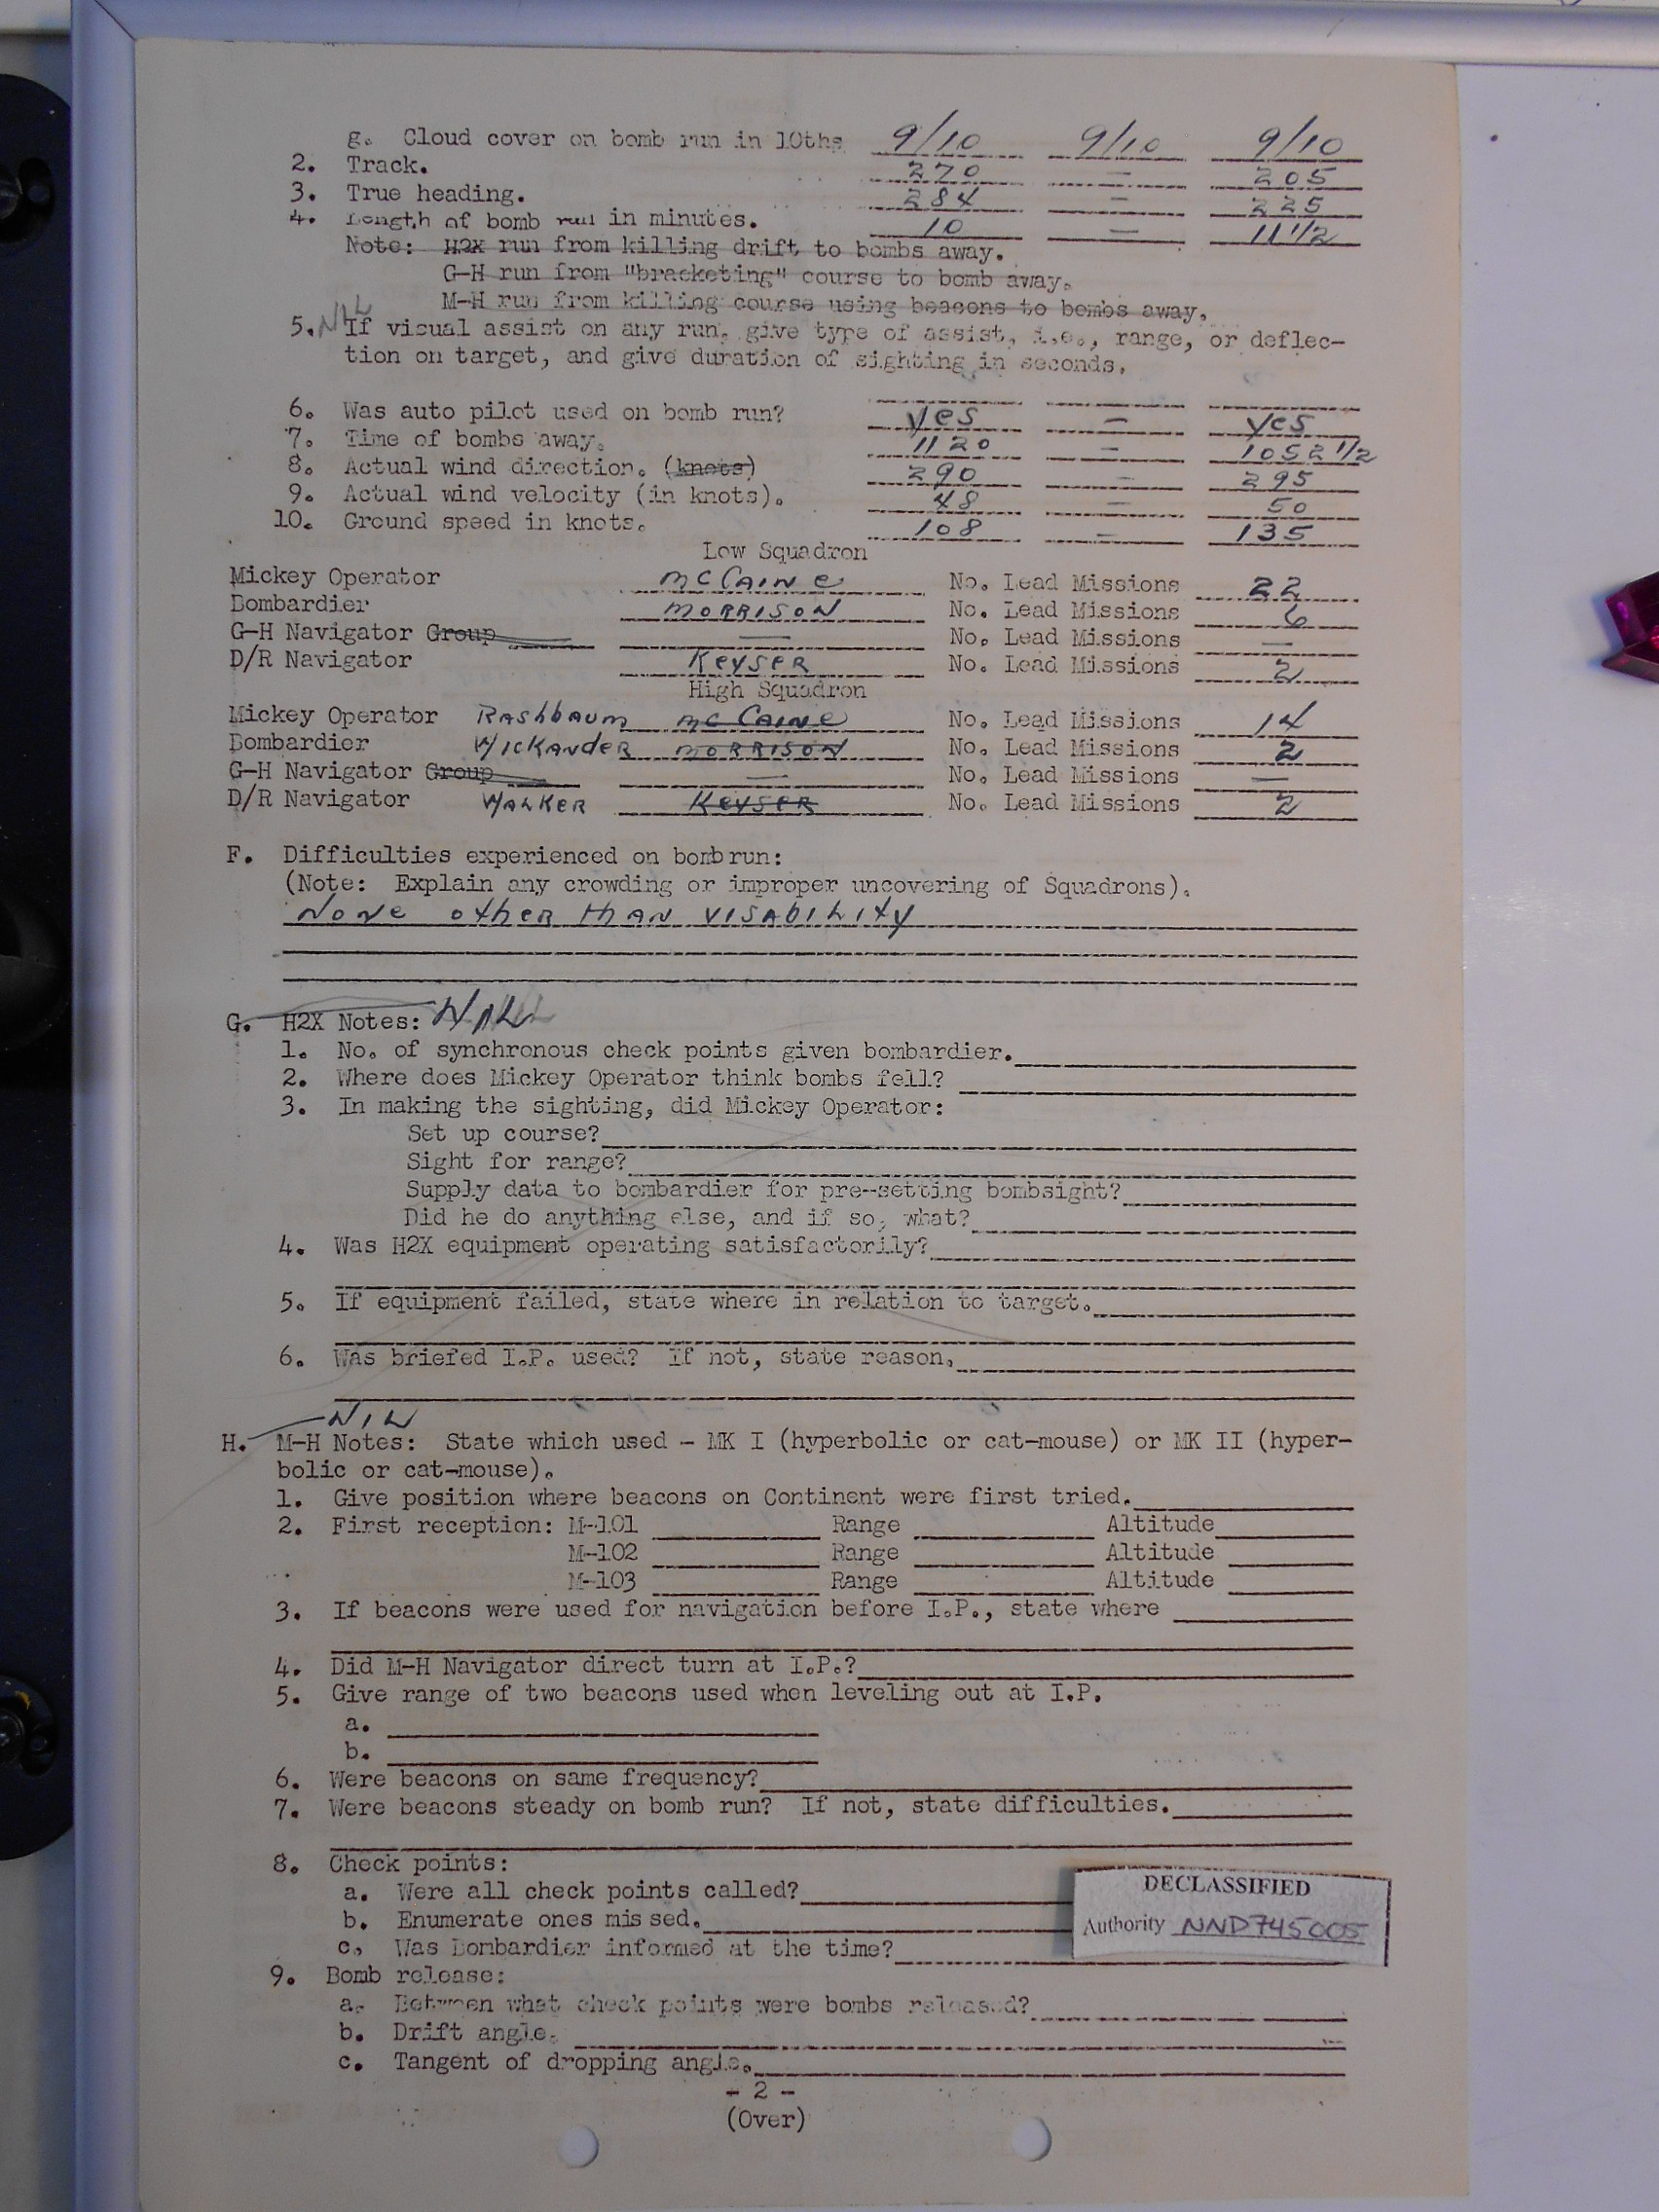 g. Cloud cover on bomb run in 10ths 9/10 9/10 9/10
2. Track. 270 - 205
3. True heading. 284 - 225
4. Length of bomb run in minutes. 10 - 11 1/2
Note: H2X run from killing drift to bombs away.
G-H run from "bracketing" course to bomb away.
M-H run from killing course using beacons to bombs away.
5. NIL If visual assist on any run, give type of assist, i.e., range, or deflec-
tion on target, and give duration of sighting in seconds.
6. Was auto pilot used on bomb run? yes - yes
7. Time of bombs away. 1120 - 1052 1/2
8. Actual wind direction. (knots) 290 - 295
9. Actual wind velocity (in knots). 48 - 50
10. Ground speed in knots. 108 - 135
Low Squadron
Mickey Operator McCaine No. Lead Missions 22
Bombardier MORRISON No. Lead Missions 6
G-H Navigator Group — No. Lead Missions —
D/R Navigator KEYSER No. Lead Missions 2
High Squadron
Mickey Operator Rashbaum McCaine No. Lead Missions 14
Bombardier WICKANDER MORRISON No. Lead Missions 2
G-H Navigator Group — No. Lead Missions —
D/R Navigator WALKER KEYSER No. Lead Missions 2
F. Difficulties experienced on bomb run:
(Note: Explain any crowding or improper uncovering of Squadrons).
None other than visability
G. H2X Notes: NIL
1. No. of synchronous check points given bombardier.
2. Where does Mickey Operator think bombs fell?
3. In making the sighting, did Mickey Operator:
Set up course?
Sight for range?
Supply data to bombardier for pre-setting bombsight?
Did he do anything else, and if so, what?
4. Was H2X equipment operating satisfactorily?
5. If equipment failed, state where in relation to target.
6. Was briefed I.P. used? If not, state reason.
NIL
H. M-H Notes: State which used - MK I (hyperbolic or cat-mouse) or MK II (hyper-
bolic or cat-mouse).
1. Give position where beacons on Continent were first tried.
2. First reception: M-101 Range Altitude
M-102 Range Altitude
M-103 Range Altitude
3. If beacons were used for navigation before I.P., state where
4. Did M-H Navigator direct turn at I.P.?
5. Give range of two beacons used when leveling out at I.P.
a.
b.
6. Were beacons on same frequency?
7. Were beacons steady on bomb run? If not, state difficulties.
8. Check points:
a. Were all check points called?
b. Enumerate ones mis sed.
c. Was Bombardier informed at the time?
DECLASSIFIED
Authority NND745005
9. Bomb release:
a. Between what check points were bombs released?
b. Drift angle.
c. Tangent of dropping angle.
- 2 -
(Over)